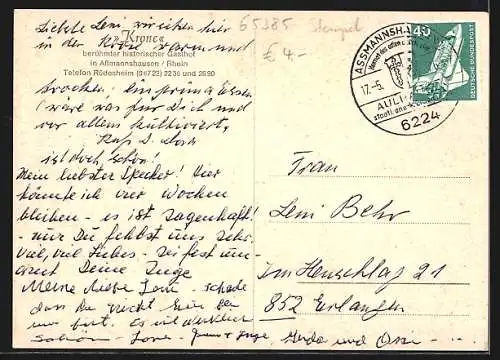 Liebste Leni wir sitzen hier
in der Krone warm und
»Krone«
berühmter historischer Gasthof
in Aßmannshausen / Rhein
Telefon Rüdesheim (06722) 2236 und 2690
trocken; ein prima Essen
wäre was für Dich und
vor allem kultiviert,
ist doch schön!
Mein liebster Specker! Hier
könnte ich vier Wochen
bleiben - es ist sagenhaft!
- nur Du fehlst uns sehr.
Viel, viel Liebes - sei fest um-
armt Deine Inge
Meine liebe Leni - schade
dass Du nicht hier bei
uns bist. Es ist wirklich
schön -
65385 Stempel
€ 4.-
ASSMANNSHA
17.-5.
AULI
6224
40
DEUTSCHE BUNDESPOST
Frau
Leni Behr
Im Heuschlag 21
852 Erlangen